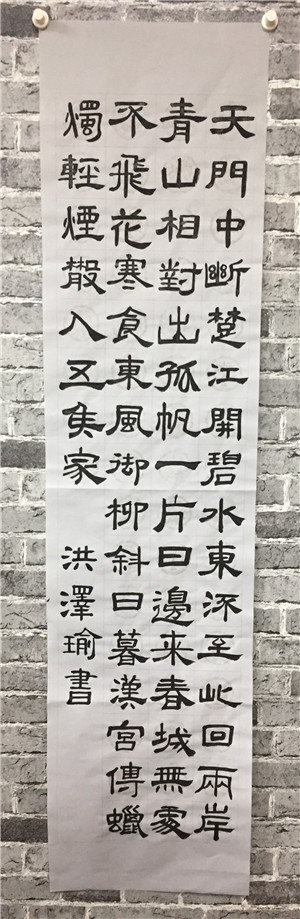 天門中斷楚江開碧水東流至此回兩岸
青山相對出孤帆一片日邊來春城無處
不飛花寒食東風御柳斜日暮漢宮傳蠟
燭輕煙散入五侯家 洪澤瑜書